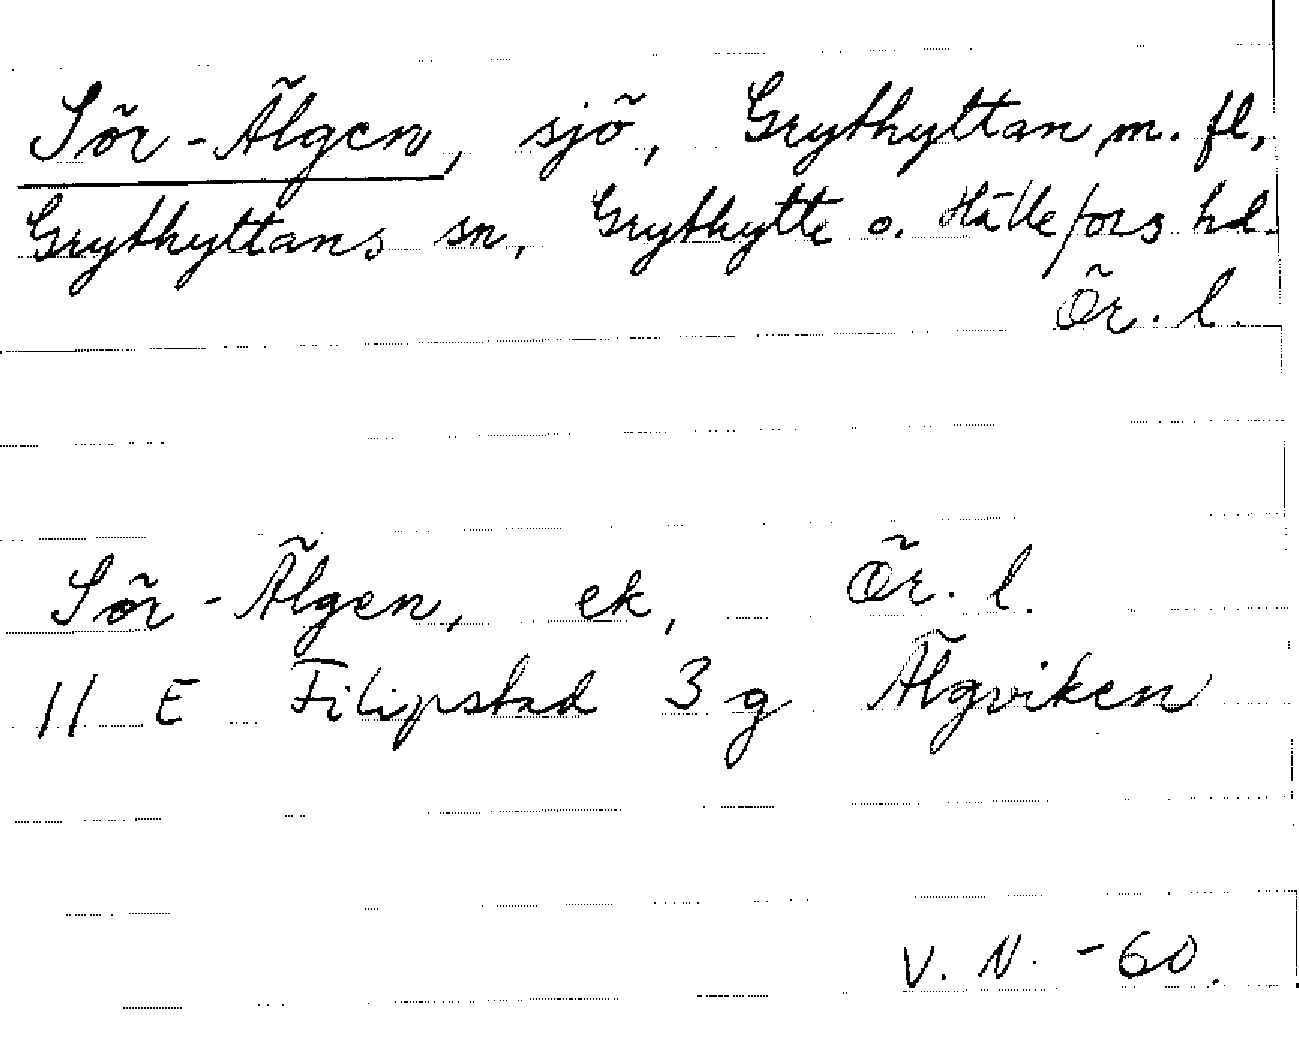 Sör-Älgen, sjö, Grythyttan m. fl,
Grythyttans sn, Grythytte o. Hällefors hd.
Ör. l.
Sör-Älgen, ek, Ör. l.
11 E Filipstad 3 g Älgviken
V. N. -60.